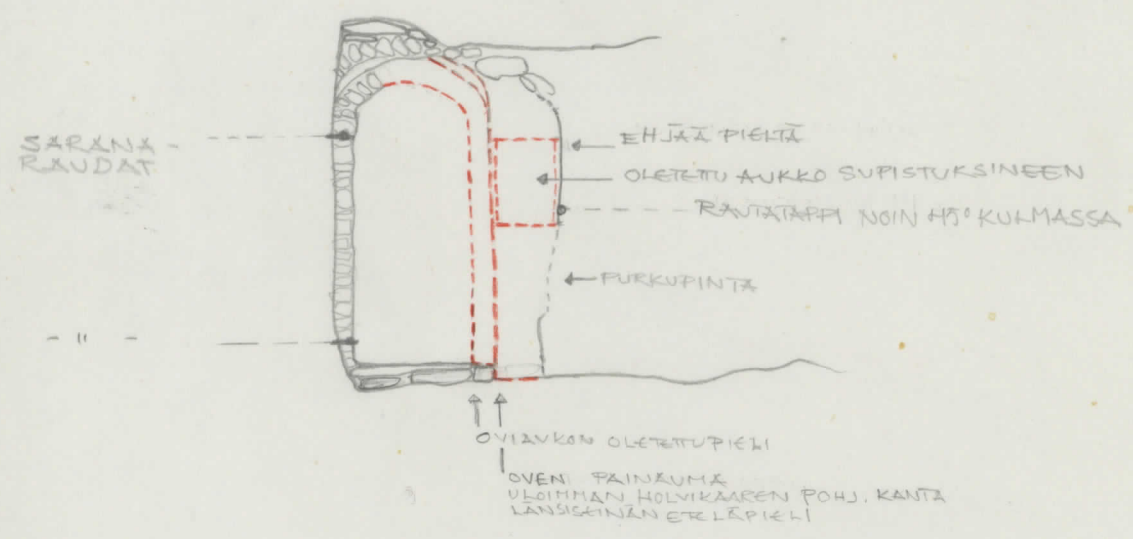 SARANA-
RAUDAT
- " -
EHJÄÄ PIELTÄ
OLETETTU AUKKO SUPISTUKSINEEN
RAUTATAPPI NOIN 45° KULMASSA
PURKUPINTA
OVIAUKON OLETETTU PIELI
OVEN PAINAUMA
ULOIMMAN HOLVIKAAREN POHJ. KANTA
LÄNSISEINÄN ETELÄPIELI